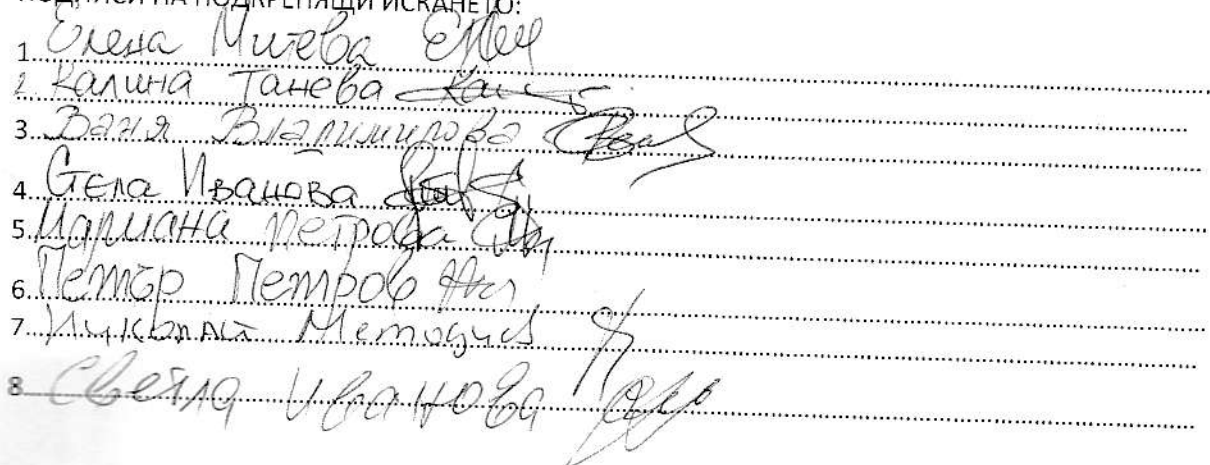 ПОДПИСИ НА ПОДКРЕПЯЩИ ИСКАНЕТО:
1. Елена Митева
2. Калина Танева
3. Ваня Владимирова
4. Стела Иванова
5. Мариана Петрова
6. Петър Петров
7. Николай Методиев
8 Светла Иванова